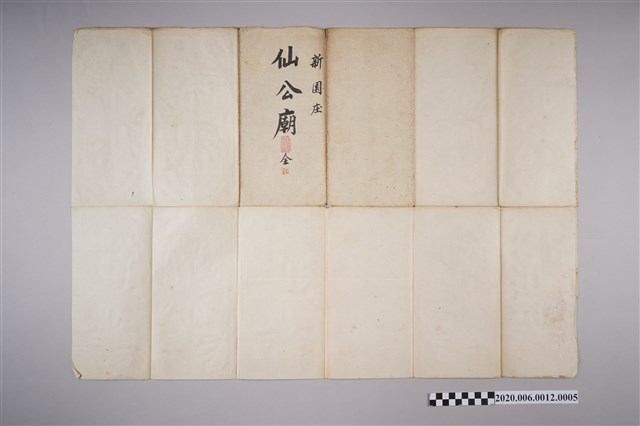 新園庄
仙公廟
全
2020.006.0012.0005